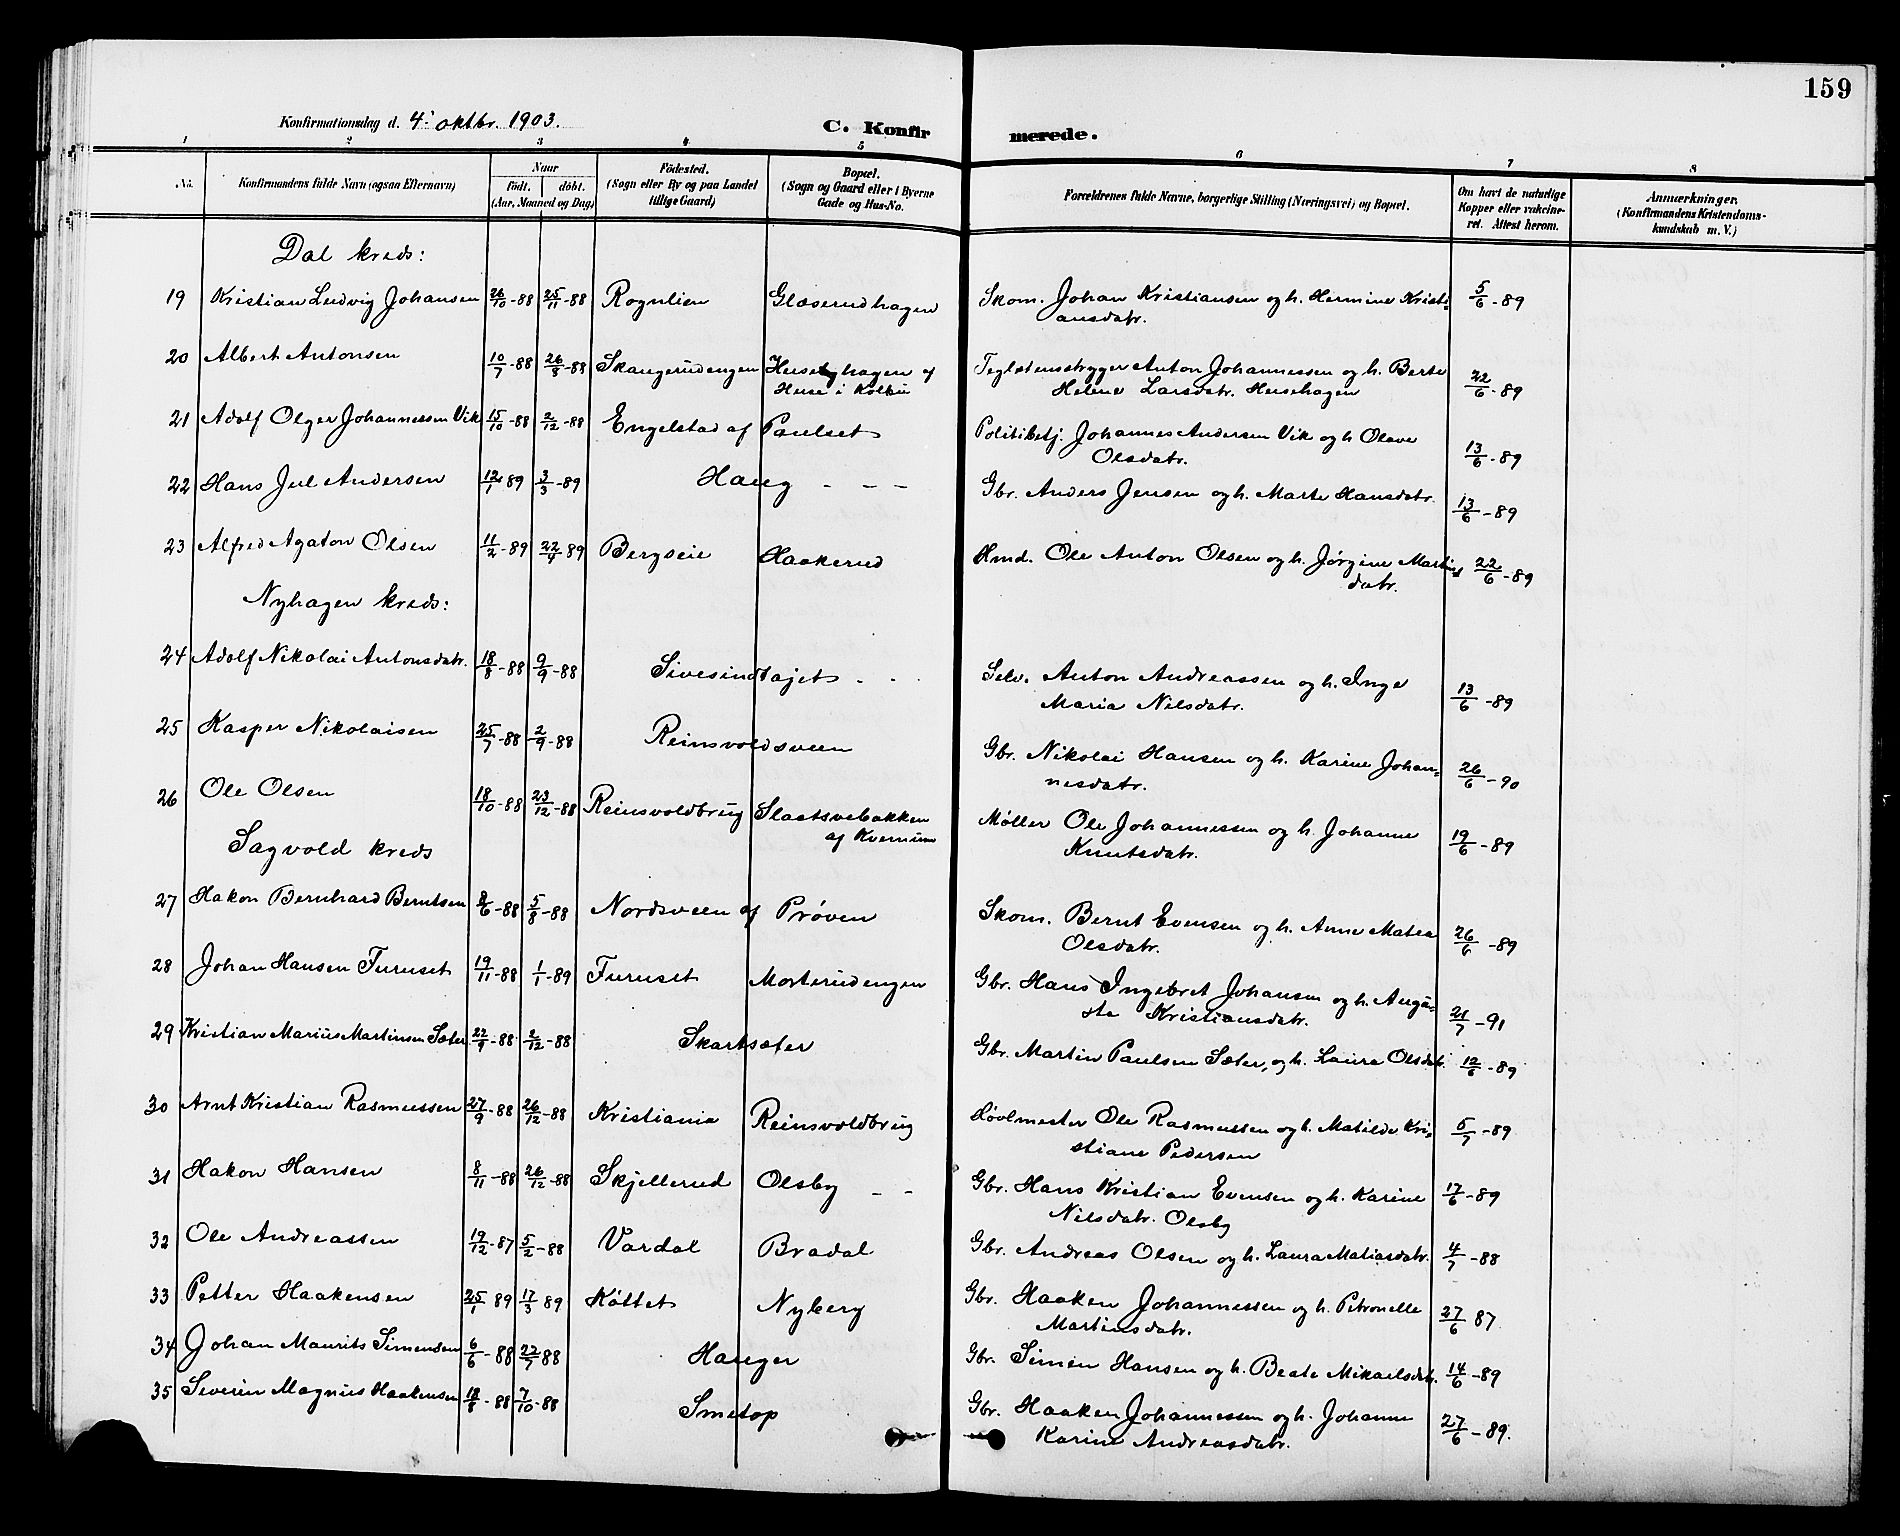 159
Konfirmationsdag d. 4. oktbr. 1903.
C. Konfirmerede.
1 2 3 4 5 6 7 8
No.
Konfirmandens fulde Navn (ogsaa Efternavn)
Naar
födt. döbt.
(Aar, Maaned og Dag)
Födested.
(Sogn eller By og paa Landet
tillige Gaard)
Bopæl.
(Sogn og Gaard eller i Byerne
Gade og Hus-No.
Forældrenes fulde Navne, borgerlige Stilling (Næringsvei) og Bopæl.
Om havt de naturlige
Kopper eller vakcine-
ret. Attest herom.
Anmærkninger.
(Konfirmandens Kristendoms-
kundskab m. V.)
Dal kreds:
19 Kristian Ludvig Johansen 26/10-88 25/11-88 Rognlien Glæserudhagen Skom. Johan Kristiansen og h. Hermine Kristi- 5/6-89
ansdatr.
20 Albert Antonsen 10/7-88 26/8-88 Skangerudengen Hersehagen af Teglstensstryger Anton Johannessen og h. Berte 22/6-89
Herse i Kolbu Helene Larsdatr. Hersehagen
21 Adolf Olger Johannessen Vik 15/10-88 2/12-88 Engelstad af Paulset Politibetj. Johannes Andersen Vik og h Olave 13/6-89
Olsdatr.
22 Hans Jul Andersen 12/1 89 3/3-89 Haug - - - Gbr. Anders Jensen og h. Marte Hansdatr. 13/6-89
23 Alfred Agaton Olsen 11/2-89 22/4 89 Bergseie Haakerud Hmd. Ole Anton Olsen og h. Jørgine Martins 22/6-89
datr.
Nyhagen kreds:
24 Adolf Nikolai Antonsdatr. 18/8-88 9/9-88 Sivesindtajet - - Selv. Anton Andreassen og h. Inge 13/6-89
Maria Nilsdatr.
25 Kasper Nikolaisen 25/7-88 2/9-88 Reinsvoldsveen Gbr. Nikolai Hansen og h. Karine Johan- 26/6-90
nesdatr.
26 Ole Olsen 18/10-88 23/12-88 Reinsvoldbrug Slaatsvebakken Møller Ole Johannessen og h. Johanne 19/6-89
af Kvernum Knutsdatr.
Sagvold kreds
27 Hakon Bernhard Berntsen 8/6-88 5/8-88 Nordsveen af Prøven Skom. Bernt Evensen og h. Anne Matea 26/6-89
Olsdatr.
28 Johan Hansen Furuset 19/11-88 1/1-89 Furuset Morterudengen Gbr. Hans Ingebret Johansen og h. Augu- 21/7-91
sta Kristiansdatr.
29 Kristian Marius Martinsen Sæter 22/9-88 2/12-88 Skartsæter Gbr. Martin Paulsen Sæter, og h. Laura Olsdatr. 12/6-89
30 Arnt Kristian Rasmussen 27/9-88 26/12-88 Kristiania Reinsvoldbrug Høvlmester Ole Rasmussen og h. Matilde Kri- 5/7-89
stiane Pedersen
31 Hakon Hansen 8/11-88 26/12-88 Skjellerud Olsby - - Gbr. Hans Kristian Evensen og h. Karine 17/6-89
Nilsdatr. Olsby
32 Ole Andreassen 19/12-87 5/2-88 Vardal Bradal Gbr. Andreas Olsen og h. Laura Matiasdatr. 4/7-88
33 Petter Haakensen 25/1 89 17/3 89 Költet Nyberg Gbr. Haaken Johannessen og h. Petronelle 27/6 87
Martinsdatr.
34 Johan Maurits Simensen 6/6-88 22/7 88 Hauger Gbr. Simen Hansen og h. Beate Mikaelsdatr. 14/6-89
35 Severin Magnus Haakensen 18/8-88 7/10-88 Smetop Gbr. Haaken Johannessen og h. Johanne 27/6-89.
Karine Andreasdatr.